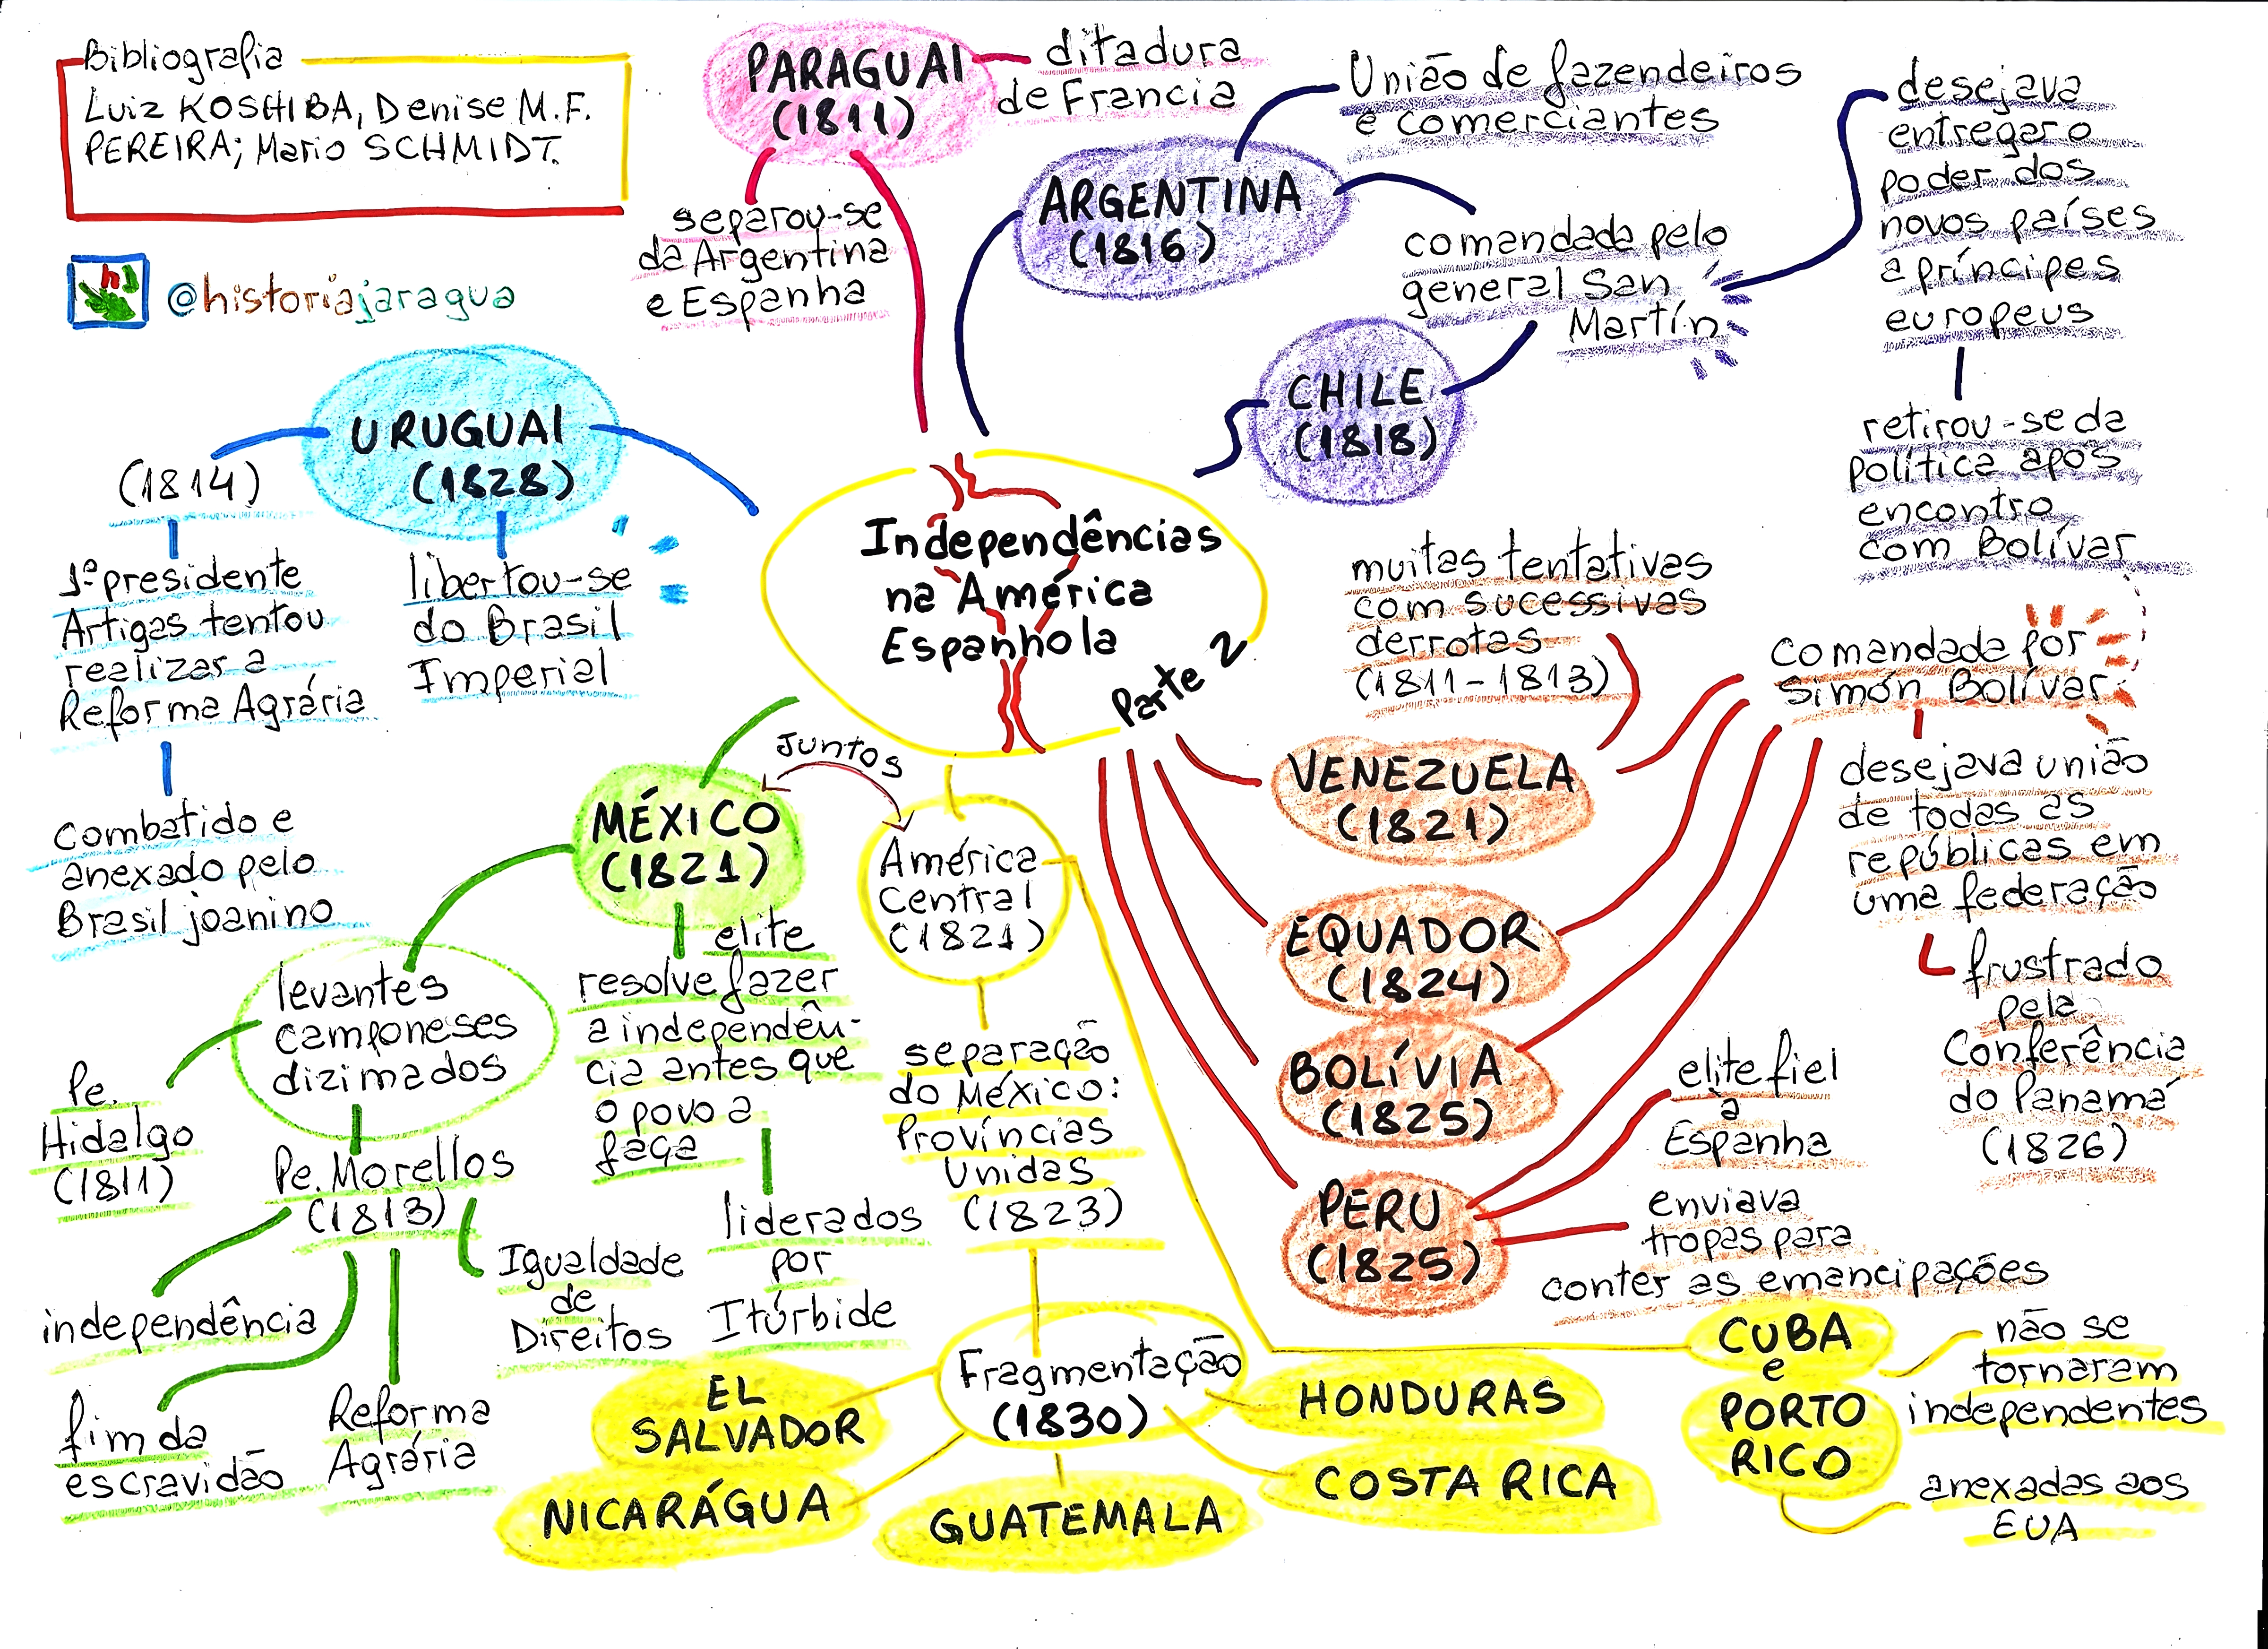 Bibliografia
Luiz KOSHIBA, Denise M.F.
PEREIRA; Mario SCHMIDT.
@historiajaragua
PARAGUAI
(1811)
ditadura
de Francia
separou-se
da Argentina
e Espanha
ARGENTINA
(1816)
União de fazendeiros
e comerciantes
comandada pelo
general San
Martín
desejava
entregar o
poder dos
novos países
a príncipes
europeus
retirou-se da
política após
encontro
com Bolívar
CHILE
(1818)
URUGUAI
(1828)
(1814)
1º presidente
Artigas tentou
realizar a
Reforma Agrária
combatido e
anexado pelo
Brasil joanino
libertou-se
do Brasil
Imperial
Independências
na América
Espanhola
Parte 2
muitas tentativas
com sucessivas
derrotas
(1811-1813)
comandada por
Simón Bolívar
desejava união
de todas as
repúblicas em
uma federação
frustrado
pela
Conferência
do Panamá
(1826)
VENEZUELA
(1821)
EQUADOR
(1824)
BOLÍVIA
(1825)
PERU
(1825)
elite fiel
a
Espanha
enviava
tropas para
conter as emancipações
Juntos
MÉXICO
(1821)
América
Central
(1821)
levantes
camponeses
dizimados
Pe.
Hidalgo
(1811)
Pe. Morellos
(1813)
independência
fim da
escravidão
Reforma
Agrária
Igualdade
de
Direitos
elite
resolve fazer
a independên-
cia antes que
o povo a
faça
liderados
por
Itúrbide
separação
do México:
Províncias
Unidas
(1823)
Fragmentação
(1830)
EL
SALVADOR
NICARÁGUA
GUATEMALA
HONDURAS
COSTA RICA
CUBA
e
PORTO
RICO
não se
tornaram
independentes
anexadas aos
EUA